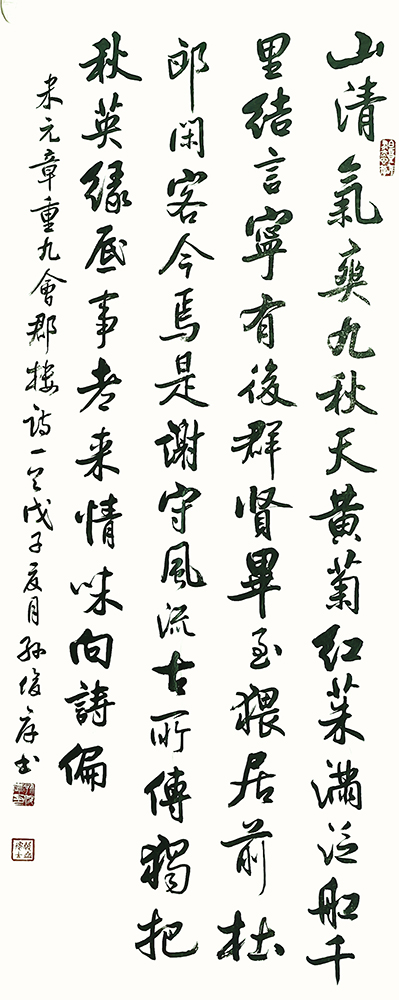 山清氣爽九秋天黄菊紅茱滿泛船千
里結言寧有後群賢畢至猥居前杜
郎閑客今焉是謝守風流古所傳獨把
秋英緣底事老来情味向詩偏
米元章重九會郡樓詩一首戊子夏月孫俊书